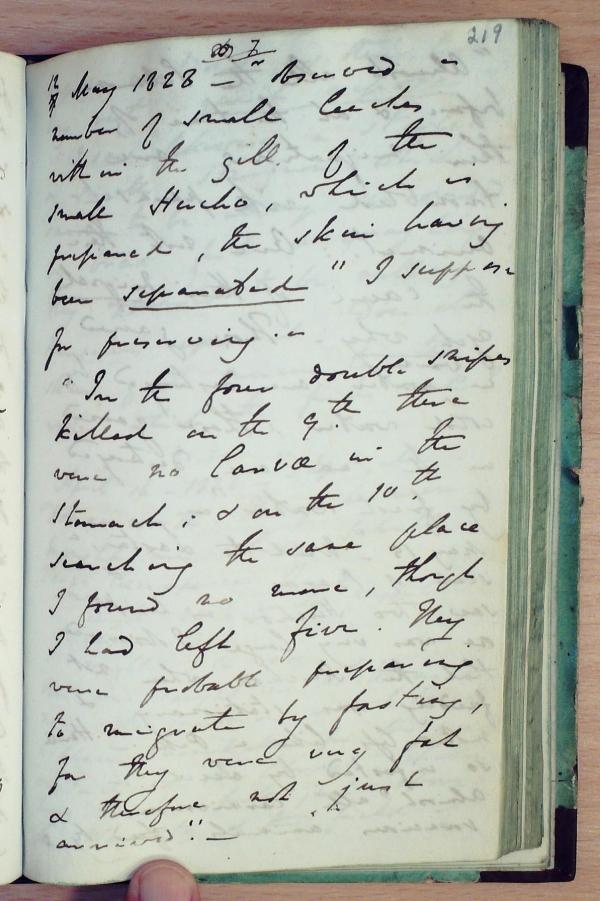 219
12 May 1828 — Observed a
number of small leeches
within the gill of the
small Hucho, which is
prepared, the skin having
been separated " I suppose
for preserving. —
"In the four double snipes
killed on the 9.th there
were no larvæ in the
stomach; & on the 10.th
searching the same place
I found no more, though
I had left five. They
were probably preparing
to emigrate by fasting,
for they were very fat
& therefore not just
arrived". —